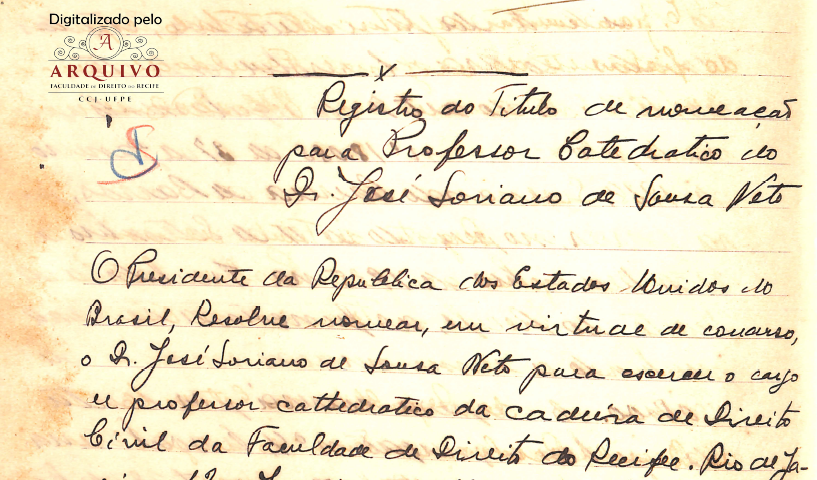 Digitalizado pelo
A
ARQUIVO
FACULDADE DE DIREITO DO RECIFE
CCJ - UFPE
Registro do Titulo de nomeação
para Professor Catedratico do
Dr. José Soriano de Sousa Neto
O Presidente da Republica dos Estados Unidos do
Brasil, Resolve nomear, em virtude de concurso,
o Dr. José Soriano de Sousa Neto para exercer o cargo
de professor cathedratico da cadeira de Direito
Civil da Faculdade de Direito do Recife. Rio de Ja-